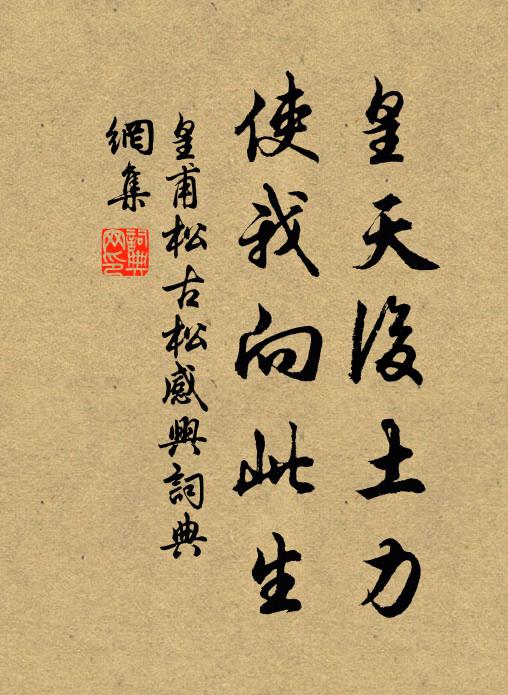 皇天後土力
使我向此生
皇甫松古松感興詞典
網集
詞典網印